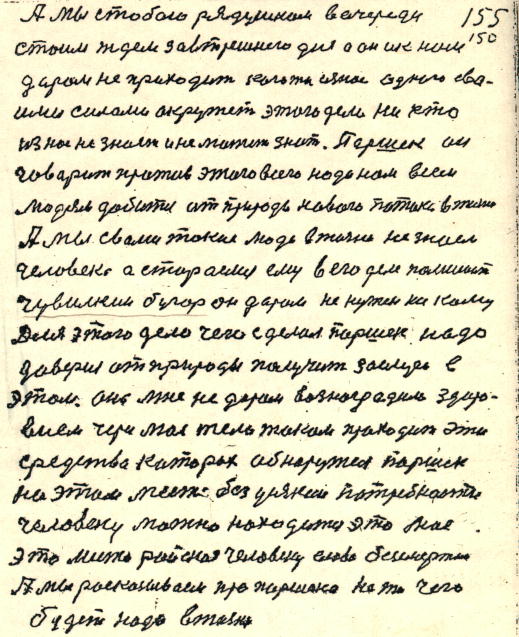 А мы стобою рядушком вачереди 155
стоим ждем завтрешнего дня а он ик нам 150
даром не приходит кагожа изнас одного сва-
ими силами окружет этого дела ни кто
из нас не знает и не может знат. Паршек он
говарит против этого всего нада нам всем
людям добится от природы нового потока в жизни
А мы свами такие люде в жизни не знаем
человека а стараемся ему в его деле памишат
чувилкин бугор он даром не нужен ни каму
Для этого дела чего сделал паршек надо
доверия от природы получит заслуга в
этом. она мне не даром возноградила здаро-
вием чериз мае тело таком проходит эти
средства каторых обнаружел паршек
на этом месте без усякой потребности
человеку можно находится это мае.
это места райская человеку слова бесмертия
А мы расказываем про паршека на то чего
будет нада в жизни